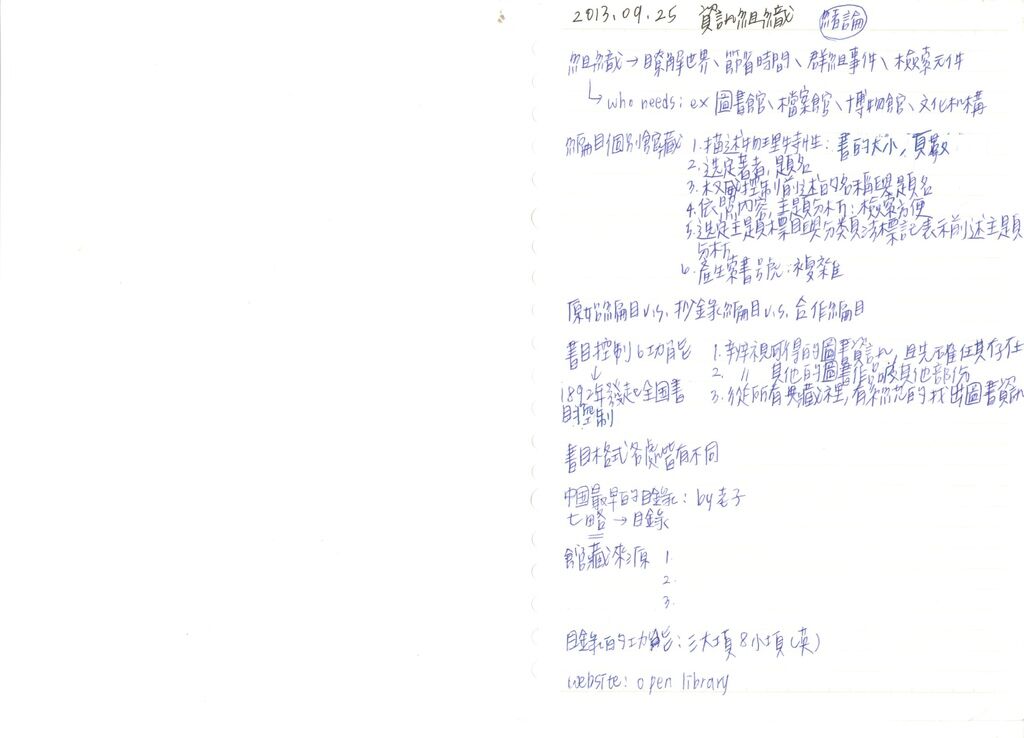 2013.09.25 資訊組織 緒論
組織→瞭解世界、節省時間、群組事件、檢索元件
↳who needs: ex 圖書館、檔案館、博物館、文化机構
編目個別館藏 1.描述物理特性：書的大小，頁數
2.選定著者，題名
3.权威控制前述的名稱與題名
4.依照內容，主題分析：檢索方便
5.選定主題標目與分類法標記表示前述主題
分析
6.產生索書號：複雜
原始編目v.s.抄錄編目v.s.合作編目
書目控制6功能 1.辨視可得的圖書資訊，且先確任其存在
↓ 2. 〃 其他的圖書作品或其他部份
1892年發起全国書 3.從所有典藏裡，有系統的找出圖書資訊
目控制
書目格式各處皆有不同
中国最早的目錄：by老子
七略→目錄
館藏來源 1.
2.
3.
目錄的功能：三大項8小項(英)
website: open library